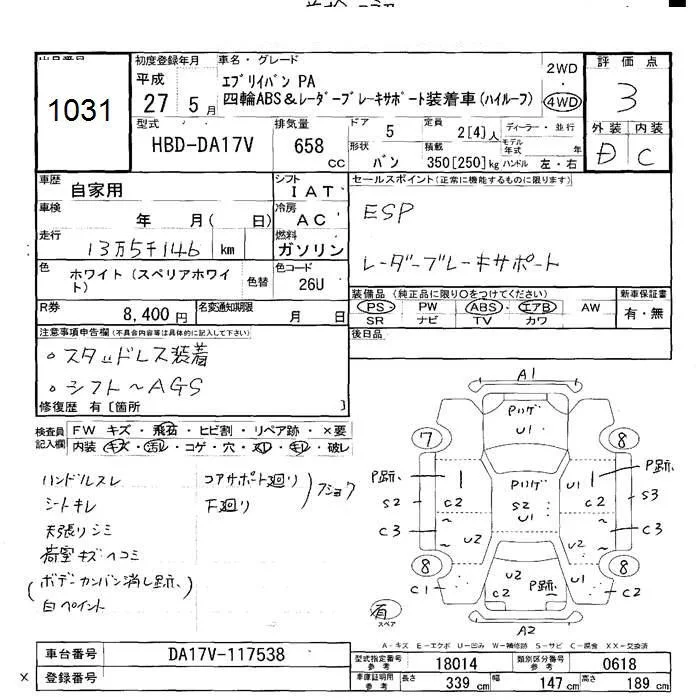 1031
初度登録年月
平成
27 5月
車名・グレード
エブリイバン PA
四輪ABS&レーダーブレーキサポート装着車(ハイルーフ)
2WD
4WD
評価点
3
外装 内装
D C
型式
HBD-DA17V
排気量
658
cc
ドア
5
定員
2[4]人
ディーラー・並行
形状
バン
積載
350[250]kg
モデル年式 年
ハンドル 左・右
車歴
自家用
シフト
IAT
セールスポイント(正常に機能するものに限ります)
ESP
レーダーブレーキサポート
車検
年 月( 日)
冷房
AC
走行
13万5千146 km
燃料
ガソリン
色
ホワイト(スペリアホワイト)
色替
色コード
26U
R券
8,400円
名変通知期限
月 日
装備品(純正品に限り○をつけてください)
PS PW ABS エアB AW
SR ナビ TV カワ
新車保証書
有・無
後日品
注意事項申告欄(不具合内容等は具体的に記入して下さい)
。スタッドレス装着
。シフト〜AGS
修復歴 有[箇所 ]
検査員記入欄
FW キズ・飛石・ヒビ割・リペア跡・×要
内装 キズ・汚レ・コゲ・穴・スレ・キレ・破レ
ハンドルスレ
シートキレ
天張りシミ
荷室キズヘコミ
(ボデーカンバン消し跡、)
白ペイント
コアサポート廻り
下廻り
フショク
A1
Pハゲ
U1
7
8
P跡、
S2
C3
C2
U2
Pハゲ
S2
U1
U1
C2
U2
P跡、
S3
C3
8
8
C1
U2
P跡、
C2
C2
A2
有
スペア
A-キズ E-エクボ U-凹み W-補修跡 S-サビ C-腐食 XX-交換済
車台番号
DA17V-117538
× 登録番号
型式指定番号
参考
18014
類別区分番号
参考
0618
車庫証明用
参考
長さ 339 cm
幅 147 cm
高さ 189 cm